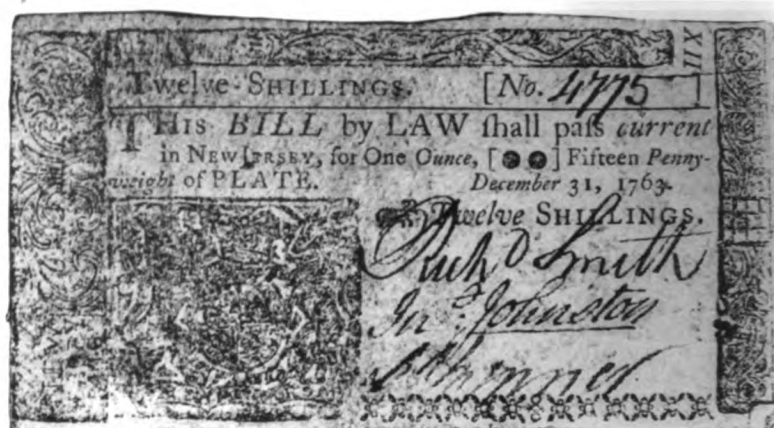 XII
Twelve-SHILLINGS. [No. 4775 ]
THIS BILL by LAW ſhall paſs current
in NEW JERSEY, for One Ounce, [ ] Fifteen Penny-
weight of PLATE. December 31, 1763.
Twelve SHILLINGS.
Richd Smith
Jno: Johnston
Skinner